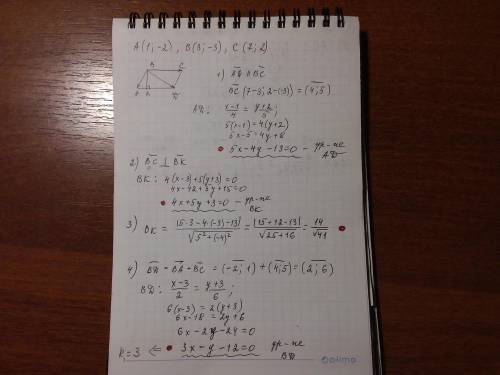 A(1; -2), B(3; -3), C(7; 2)
B C
A K D
1) AD ∥ BC
BC (7-3; 2-(-3)) = (4; 5)
AD: (x-1)/4 = (y+2)/5;
5(x-1) = 4(y+2)
5x-5 = 4y+8
5x-4y-13=0 - ур-ие AD
2) BC ⊥ BK
BK: 4(x-3)+5(y+3)=0
4x-12+5y+15=0
4x+5y+3=0 - ур-ие BK
3) BK = |5·3-4·(-3)-13|/√(5²+(-4)²) = |15+12-13|/√(25+16) = 14/√41
4) BD = BA + BC = (-2; 1) + (4; 5) = (2; 6)
BD: (x-3)/2 = (y+3)/6;
6(x-3) = 2(y+3)
6x-18 = 2y+6
6x-2y-24=0
k=3 ⇐ 3x-y-12=0 ур-ие BD
olimo